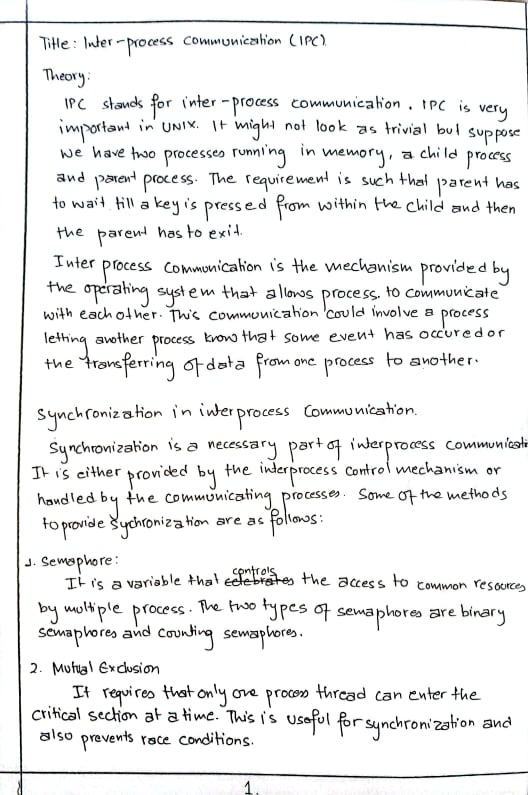 Title: Inter-process communication (IPC)
Theory:
IPC stands for inter-process communication. IPC is very
important in UNIX. It might not look as trivial but suppose
we have two processes running in memory, a child process
and parent process. The requirement is such that parent has
to wait till a key is pressed from within the child and then
the parent has to exit.
Inter process communication is the mechanism provided by
the operating system that allows process, to communicate
with each other. This communication could involve a process
letting another process know that some event has occured or
the transferring of data from one process to another.
Synchronization in interprocess communication.
Synchronization is a necessary part of interprocess communicati
It is either provided by the interprocess control mechanism or
handled by the communicating processes. Some of the methods
to provide sychronization are as follows:
1. Semaphore:
It is a variable that controls the access to common resources
by multiple process. The two types of semaphores are binary
semaphores and counting semaphores.
2. Mutual Exclusion
It requires that only one process thread can enter the
critical section at a time. This is useful for synchronization and
also prevents race conditions.
1.